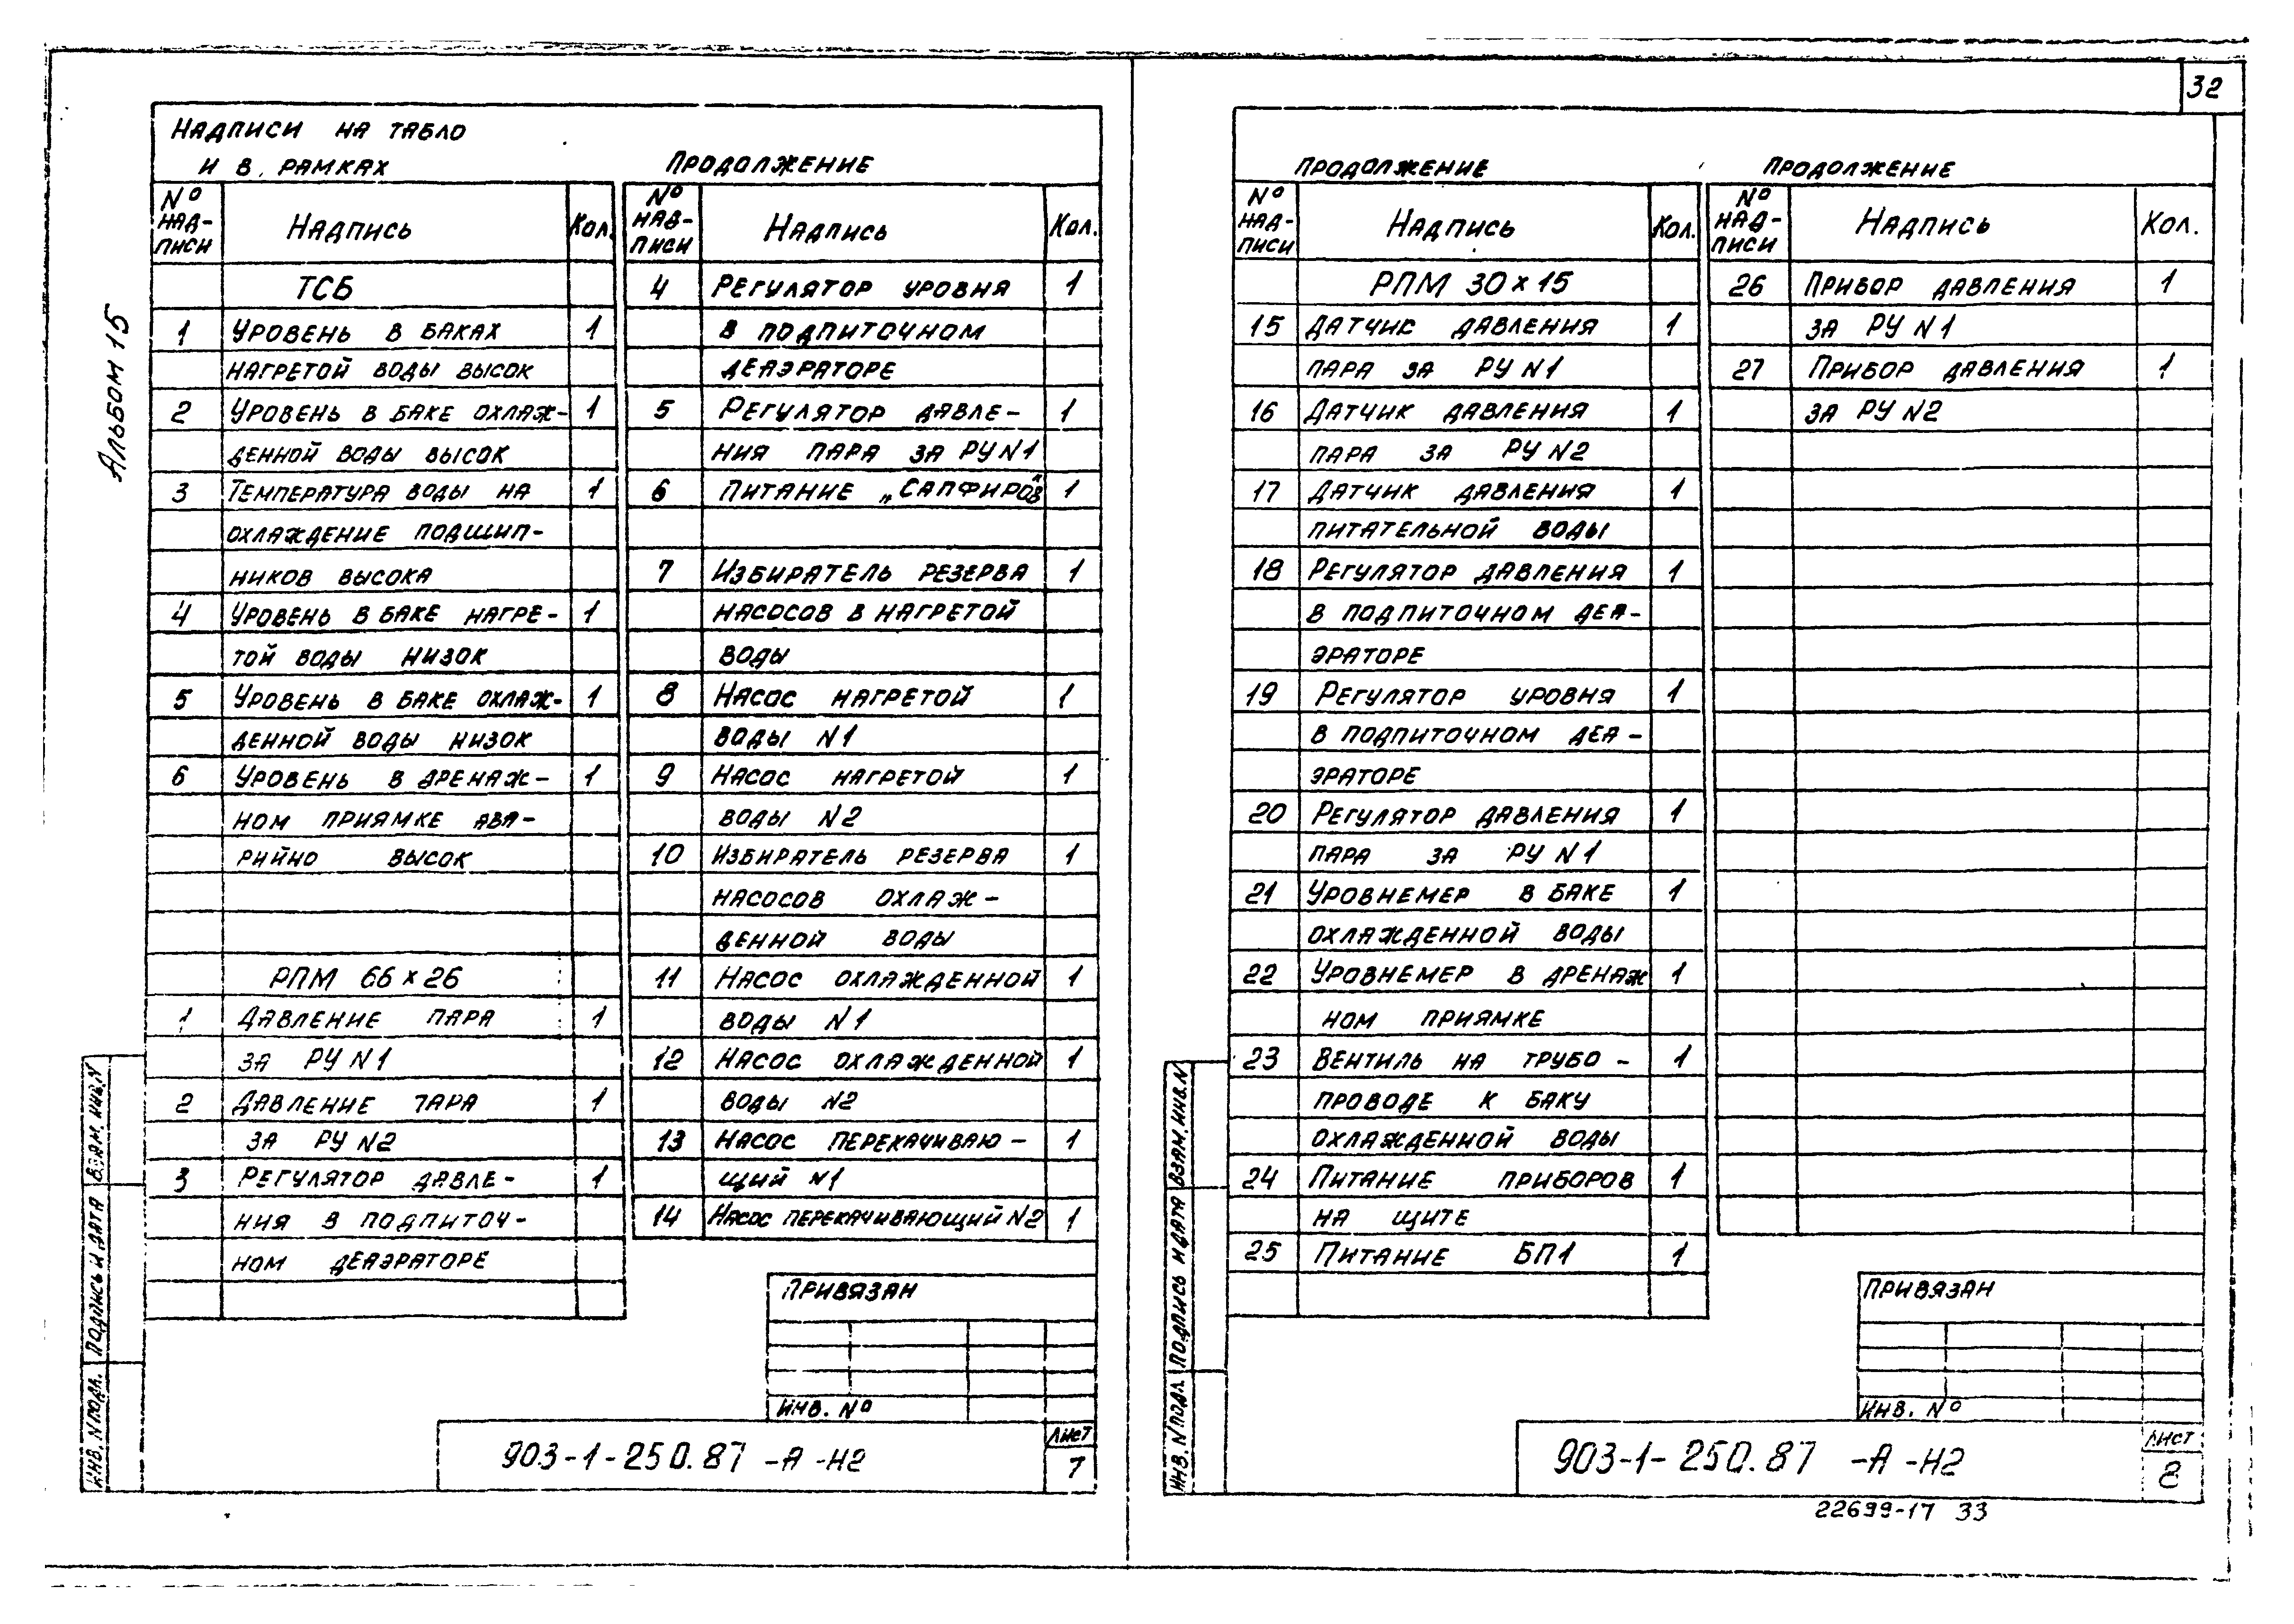 32
Альбом 15
Надписи на табло
и в рамках
№ надписи Надпись Кол.
ТСБ
1 Уровень в баках 1
нагретой воды высок
2 Уровень в баке охлаж- 1
денной воды высок
3 Температура воды на 1
охлаждение подшип-
ников высока
4 Уровень в баке нагре- 1
той воды низок
5 Уровень в баке охлаж- 1
денной воды низок
6 Уровень в дренаж- 1
ном приямке ава-
рийно высок
РПМ 66 х 26
1 Давление пара 1
за РУ N1
2 Давление пара 1
за РУ N2
3 Регулятор давле- 1
ния в подпиточ-
ном деаэраторе
Продолжение
№ надписи Надпись Кол.
4 Регулятор уровня 1
в подпиточном
деаэраторе
5 Регулятор давле- 1
ния пара за РУ N1
6 Питание „Сапфиров" 1
7 Избиратель резерва 1
насосов в нагретой
воды
8 Насос нагретой 1
воды N1
9 Насос нагретой 1
воды N2
10 Избиратель резерва 1
насосов охлаж-
денной воды
11 Насос охлажденной 1
воды N1
12 Насос охлажденной 1
воды N2
13 Насос перекачиваю- 1
щий N1
14 Насос перекачивающий N2 1
Привязан
Инв. №
903-1-250.87 -А -Н2
Лист
7
Инв. N подл. Подпись и дата Взам. инв. N
Продолжение
№ надписи Надпись Кол.
РПМ 30 х 15
15 Датчик давления 1
пара за РУ N1
16 Датчик давления 1
пара за РУ N2
17 Датчик давления 1
питательной воды
18 Регулятор давления 1
в подпиточном деа-
эраторе
19 Регулятор уровня 1
в подпиточном деа-
эраторе
20 Регулятор давления 1
пара за РУ N1
21 Уровнемер в баке 1
охлажденной воды
22 Уровнемер в дренаж 1
ном приямке
23 Вентиль на трубо- 1
проводе к баку
охлажденной воды
24 Питание приборов 1
на щите
25 Питание БП1 1
Продолжение
№ надписи Надпись Кол.
26 Прибор давления 1
за РУ N1
27 Прибор давления 1
за РУ N2
Привязан
Инв. №
903-1-250.87 -А -Н2
Лист
8
Инв. N подл. Подпись и дата Взам. инв. N
22699-17 33